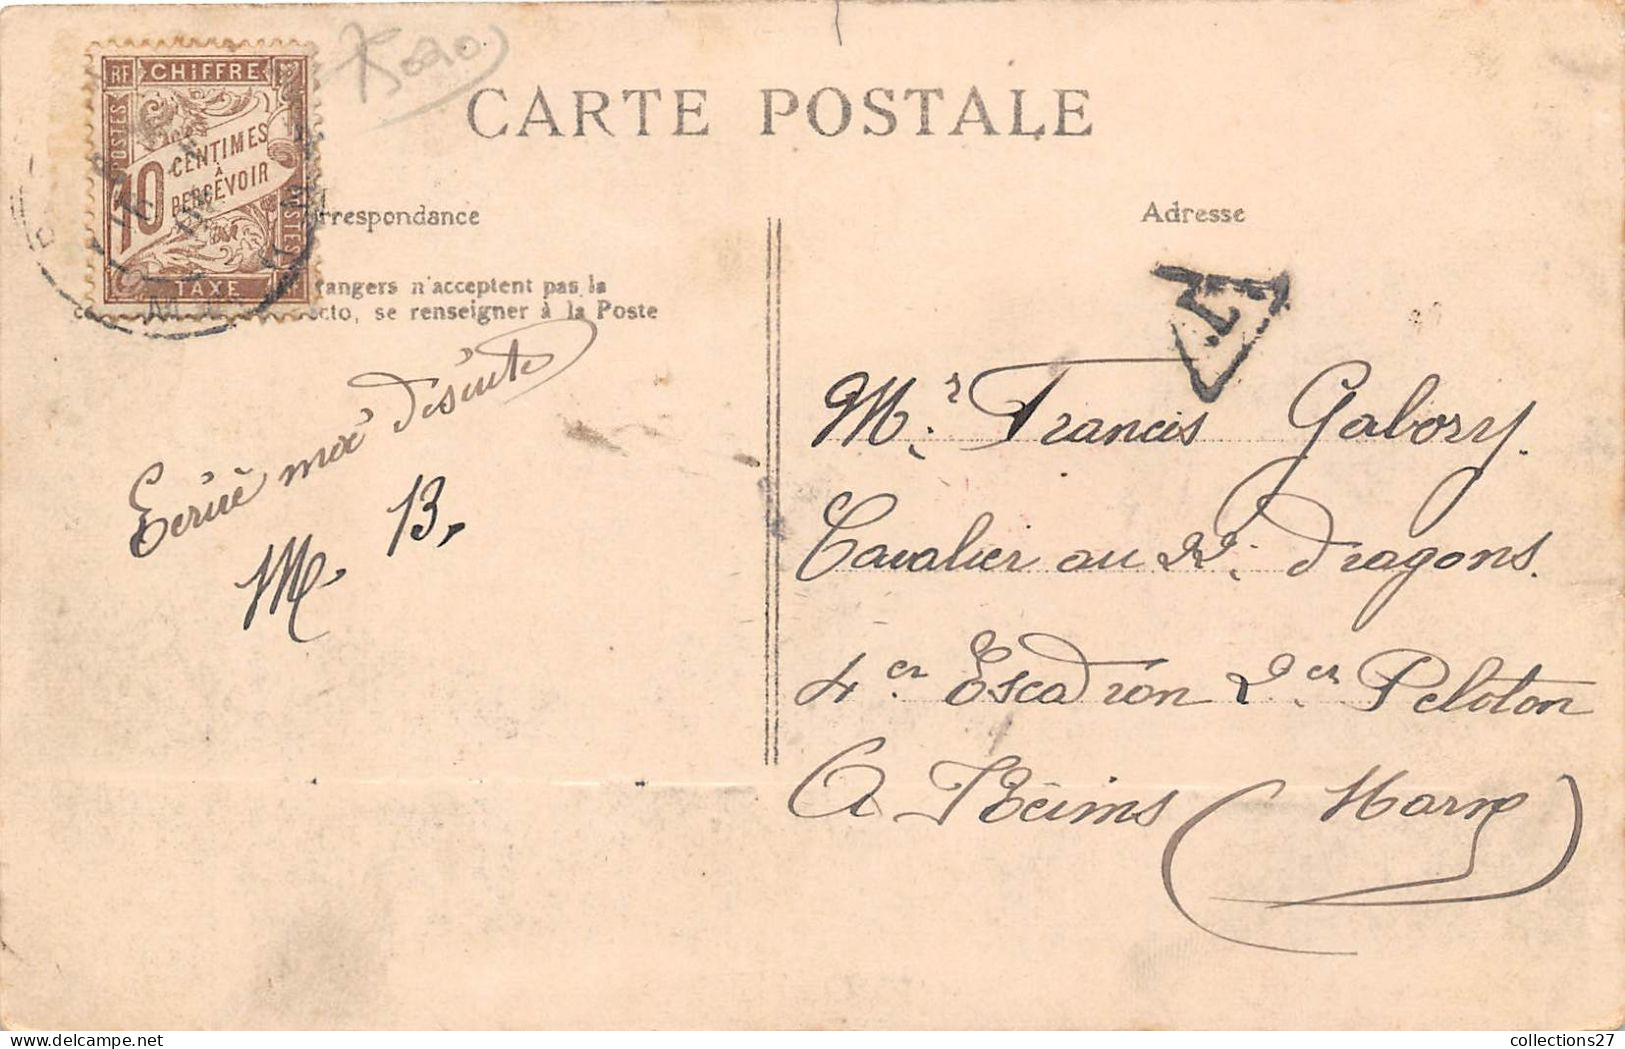 RF CHIFFRE
POSTES
10 CENTIMES
À
PERCEVOIR
POSTES
TAXE
CARTE POSTALE
rrespondance
Adresse
rangers n'acceptent pas la
cto, se renseigner à la Poste
T
Ecrire moi de suite
M. B.
Mr. Francis Gabory.
Cavalier au 22e. dragons.
4er Escadron 2er Peloton
A Reims (Marne)
collections27